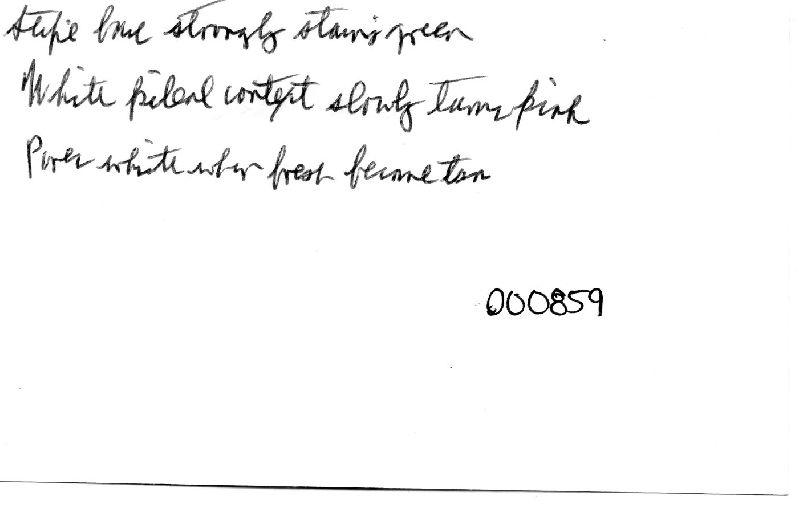 Stipe base strongly stains green
White pileal context slowly turns pink
Pores white when fresh become tan
000859